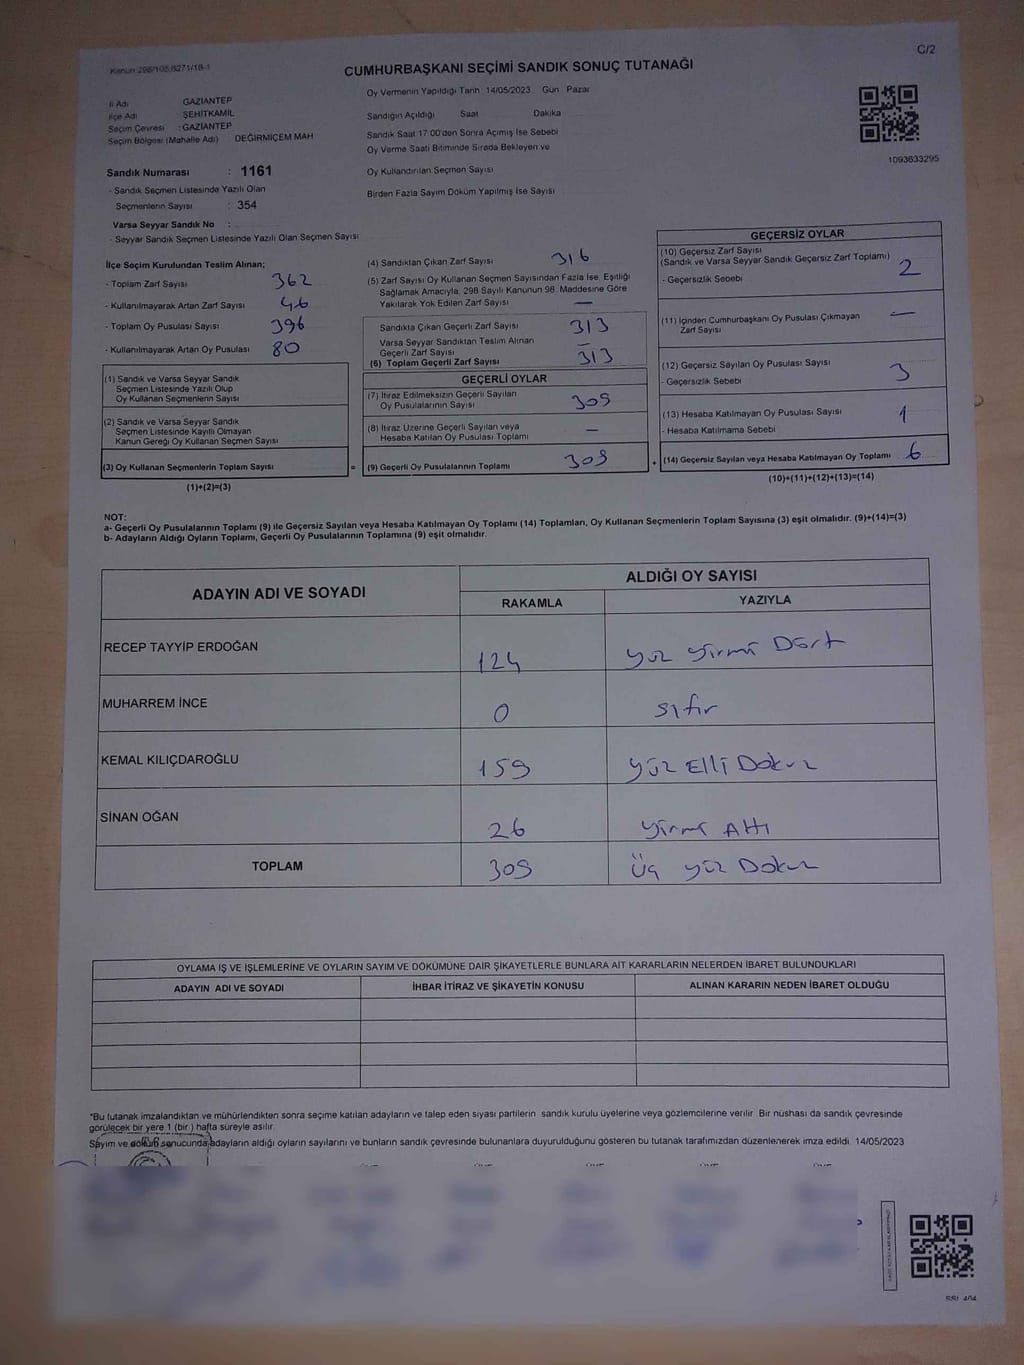 Kanun 298/105,6271/18-1
C/2
CUMHURBAŞKANI SEÇİMİ SANDIK SONUÇ TUTANAĞI
İl Adı GAZİANTEP
İlçe Adı ŞEHİTKAMİL
Seçim Çevresi : GAZİANTEP
Seçim Bölgesi (Mahalle Adı) DEĞİRMİÇEM MAH
Oy Vermenin Yapıldığı Tarih 14/05/2023 Gün Pazar
Sandığın Açıldığı Saat Dakika
Sandık Saat 17:00'den Sonra Açılmış İse Sebebi
Oy Verme Saati Bitiminde Sırada Bekleyen ve
Oy Kullandırılan Seçmen Sayısı
Birden Fazla Sayım Döküm Yapılmış İse Sayısı
1093633295
Sandık Numarası : 1161
- Sandık Seçmen Listesinde Yazılı Olan
Seçmenlerin Sayısı : 354
Varsa Seyyar Sandık No :
- Seyyar Sandık Seçmen Listesinde Yazılı Olan Seçmen Sayısı
İlçe Seçim Kurulundan Teslim Alınan;
- Toplam Zarf Sayısı 362
- Kullanılmayarak Artan Zarf Sayısı 46
- Toplam Oy Pusulası Sayısı 396
- Kullanılmayarak Artan Oy Pusulası 80
(1) Sandık ve Varsa Seyyar Sandık
Seçmen Listesinde Yazılı Olup
Oy Kullanan Seçmenlerin Sayısı
(2) Sandık ve Varsa Seyyar Sandık
Seçmen Listesinde Kayıtlı Olmayan
Kanun Gereği Oy Kullanan Seçmen Sayısı
(3) Oy Kullanan Seçmenlerin Toplam Sayısı =
(1)+(2)=(3)
(4) Sandıktan Çıkan Zarf Sayısı 316
(5) Zarf Sayısı Oy Kullanan Seçmen Sayısından Fazla İse, Eşitliği
Sağlamak Amacıyla, 298 Sayılı Kanunun 98. Maddesine Göre
Yakılarak Yok Edilen Zarf Sayısı —
Sandıkta Çıkan Geçerli Zarf Sayısı 313
Varsa Seyyar Sandıktan Teslim Alınan
Geçerli Zarf Sayısı —
(6) Toplam Geçerli Zarf Sayısı 313
GEÇERLİ OYLAR
(7) İtiraz Edilmeksizin Geçerli Sayılan
Oy Pusulalarının Sayısı 309
(8) İtiraz Üzerine Geçerli Sayılan veya
Hesaba Katılan Oy Pusulası Toplamı —
(9) Geçerli Oy Pusulalarının Toplamı 309 +
GEÇERSİZ OYLAR
(10) Geçersiz Zarf Sayısı
(Sandık ve Varsa Seyyar Sandık Geçersiz Zarf Toplamı) 2
- Geçersizlik Sebebi
(11) İçinden Cumhurbaşkanı Oy Pusulası Çıkmayan
Zarf Sayısı —
(12) Geçersiz Sayılan Oy Pusulası Sayısı 3
- Geçersizlik Sebebi
(13) Hesaba Katılmayan Oy Pusulası Sayısı 1
- Hesaba Katılmama Sebebi
(14) Geçersiz Sayılan veya Hesaba Katılmayan Oy Toplamı 6
(10)+(11)+(12)+(13)=(14)
NOT:
a- Geçerli Oy Pusulalarının Toplamı (9) ile Geçersiz Sayılan veya Hesaba Katılmayan Oy Toplamı (14) Toplamları, Oy Kullanan Seçmenlerin Toplam Sayısına (3) eşit olmalıdır. (9)+(14)=(3)
b- Adayların Aldığı Oyların Toplamı, Geçerli Oy Pusulalarının Toplamına (9) eşit olmalıdır.
ADAYIN ADI VE SOYADI
ALDIĞI OY SAYISI
RAKAMLA YAZIYLA
RECEP TAYYİP ERDOĞAN 124 yüz yirmi Dört
MUHARREM İNCE 0 sıfır
KEMAL KILIÇDAROĞLU 159 yüz Elli Dokuz
SİNAN OĞAN 26 yirmi Altı
TOPLAM 309 Üç yüz Dokuz
OYLAMA İŞ VE İŞLEMLERİNE VE OYLARIN SAYIM VE DÖKÜMÜNE DAİR ŞİKAYETLERLE BUNLARA AİT KARARLARIN NELERDEN İBARET BULUNDUKLARI
ADAYIN ADI VE SOYADI İHBAR İTİRAZ VE ŞİKAYETİN KONUSU ALINAN KARARIN NEDEN İBARET OLDUĞU
*Bu tutanak imzalandıktan ve mühürlendikten sonra seçime katılan adayların ve talep eden siyasi partilerin sandık kurulu üyelerine veya gözlemcilerine verilir. Bir nüshası da sandık çevresinde
görülecek bir yere 1 (bir ) hafta süreyle asılır.
Sayım ve döküm sonucunda adayların aldığı oyların sayılarını ve bunların sandık çevresinde bulunanlara duyurulduğunu gösteren bu tutanak tarafımızdan düzenlenerek imza edildi. 14/05/2023